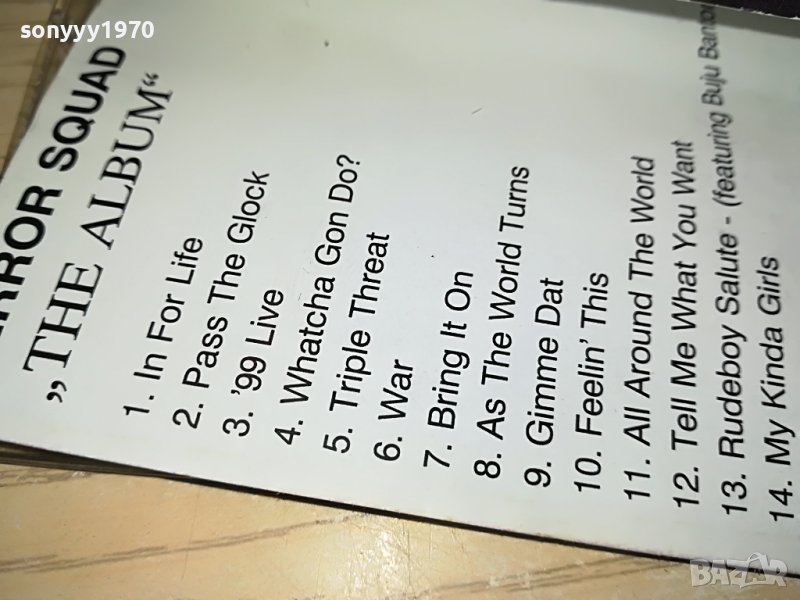 sonyyy1970
RROR SQUAD
„THE ALBUM“
1. In For Life
2. Pass The Glock
3. '99 Live
4. Whatcha Gon Do?
5. Triple Threat
6. War
7. Bring It On
8. As The World Turns
9. Gimme Dat
10. Feelin' This
11. All Around The World
12. Tell Me What You Want
13. Rudeboy Salute - (featuring Buju Banton
14. My Kinda Girls
BAZAR